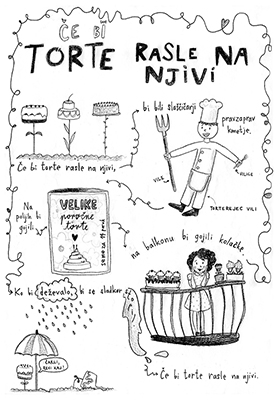 ČE BI
TORTE RASLE NA
NJIVI
bi bili slaščičarji
pravzaprav
kmetje,
VILE
VILICE
TORTEREJEC VILI
Če bi torte rasle na njivi,
Na
poljih bi
gojili
VELIKE
poročne
torte
samo za
na balkonu bi gojili kolačke.
Ko bi deževalo, bi se sladkor
Če bi torte rasle na njivi.